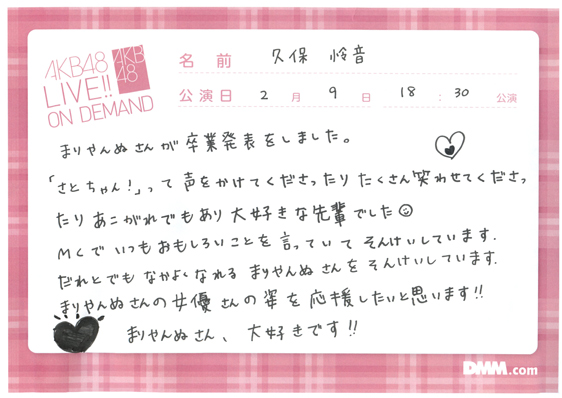 AKB48
LIVE!!
ON DEMAND
AKB
48
名前 久保 怜音
公演日 2月 9日 18:30 公演
まりやんぬさんが卒業発表をしました。
「さとちゃん!」って声をかけてくださったりたくさん笑わせてくださっ
たり あこがれでもあり大好きな先輩でした☺
MCでいつもおもしろいことを言っていてそんけいしています.
だれとでもなかよくなれる まりやんぬさんをそんけいしています.
まりやんぬさんの女優さんの姿を応援したいと思います!!
まりやんぬさん、大好きです!!
DMM.com